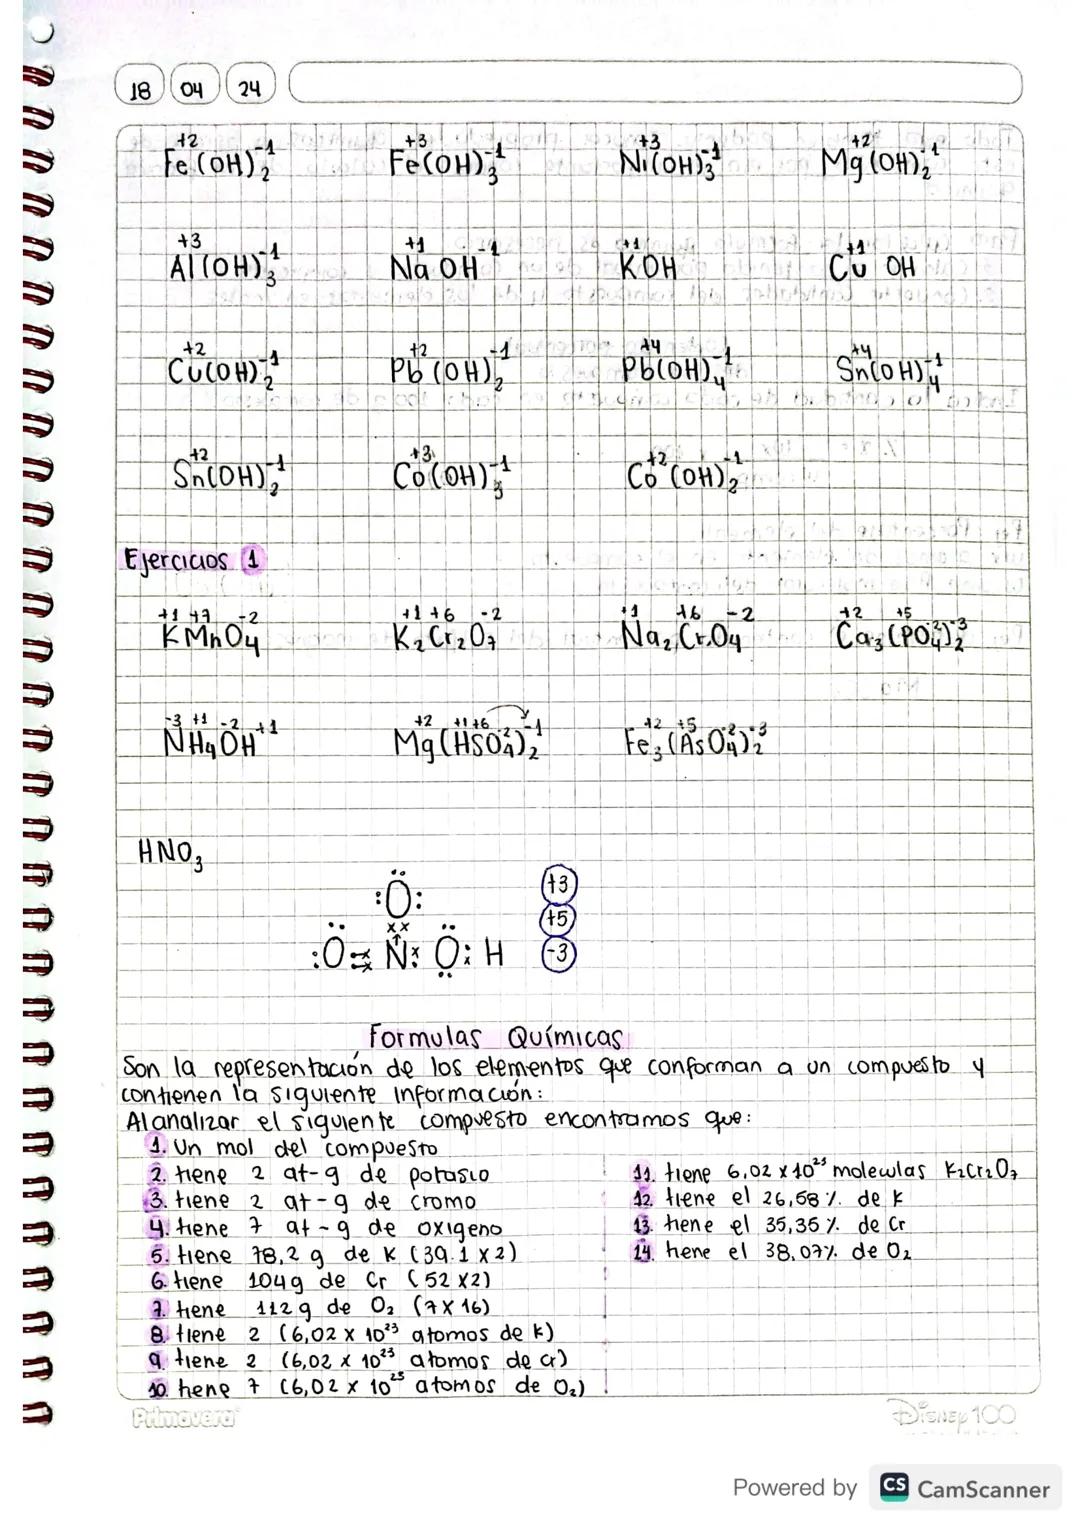 18 04 24
+2 -1 +3 -1 +3 -1 +2 -1
Fe(OH)₂ Fe(OH)₃ Ni(OH)₃ Mg(OH)₂
+3 -1 +1 -1 +1 +1
Al(OH)₃ Na OH KOH Cu OH
+2 -1 +2 -1 +4 -1 +4 -1
Cu(OH)₂ Pb(OH)₂ Pb(OH)₄ Sn(OH)₄
+2 -1 +3 -1 +2 -1
Sn(OH)₂ Co(OH)₃ Co(OH)₂
Ejercicios 1
+1 +7 -2 +1 +6 -2 +1 +6 -2 +2 +5 -2 -3
KMnO₄ K₂Cr₂O₇ Na₂CrO₄ Ca₃(PO₄)₂
-3 +1 -2 +1 +2 +1 +6 -2 -1 +2 +5 -2 -3
NH₄OH Mg(HSO₄)₂ Fe₃(AsO₄)₂
HNO₃
:Ö: +3
xx +5
:Ö N Ö: H -3
Formulas Químicas
Son la representación de los elementos que conforman a un compuesto y
contienen la siguiente información:
Al analizar el siguiente compuesto encontramos que:
1. Un mol del compuesto
2. tiene 2 at-g de potasio
3. tiene 2 at-g de cromo
4. tiene 7 at-g de oxigeno
5. tiene 78,2 g de K (39.1 x 2)
6. tiene 104g de Cr (52 x2)
7. tiene 112 g de O₂ (7x 16)
8. tiene 2 (6,02 x 10²³ atomos de k)
9. tiene 2 (6,02 x 10²³ atomos de cr)
10. tiene 7 (6,02 x 10²³ atomos de O₂)
11. tiene 6,02 x 10²³ moleculas K₂Cr₂O₇
12. tiene el 26,58 %. de K
13. tiene el 35,35 %. de Cr
14. tiene el 38,07%. de O₂
Primavera
Disney 100
Powered by CS CamScanner